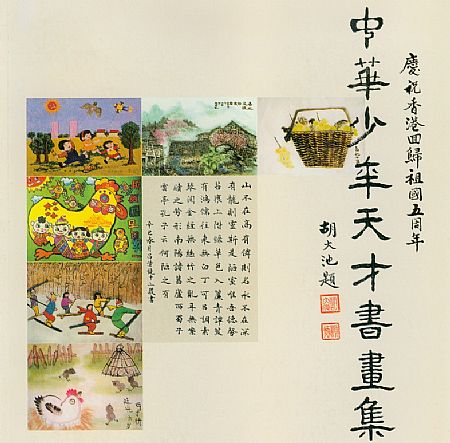 慶祝香港回歸祖國五周年
中華少年天才書畫集
胡大池題
山不在高有僊則名水不在深
有龍則靈斯是陋室惟吾德馨
苔痕上階綠草色入簾青談笑
有鴻儒往來無白丁可以調素
琴閱金經無絲竹之亂耳無案
牘之勞形南陽諸葛廬西蜀子
雲亭孔子云何陋之有